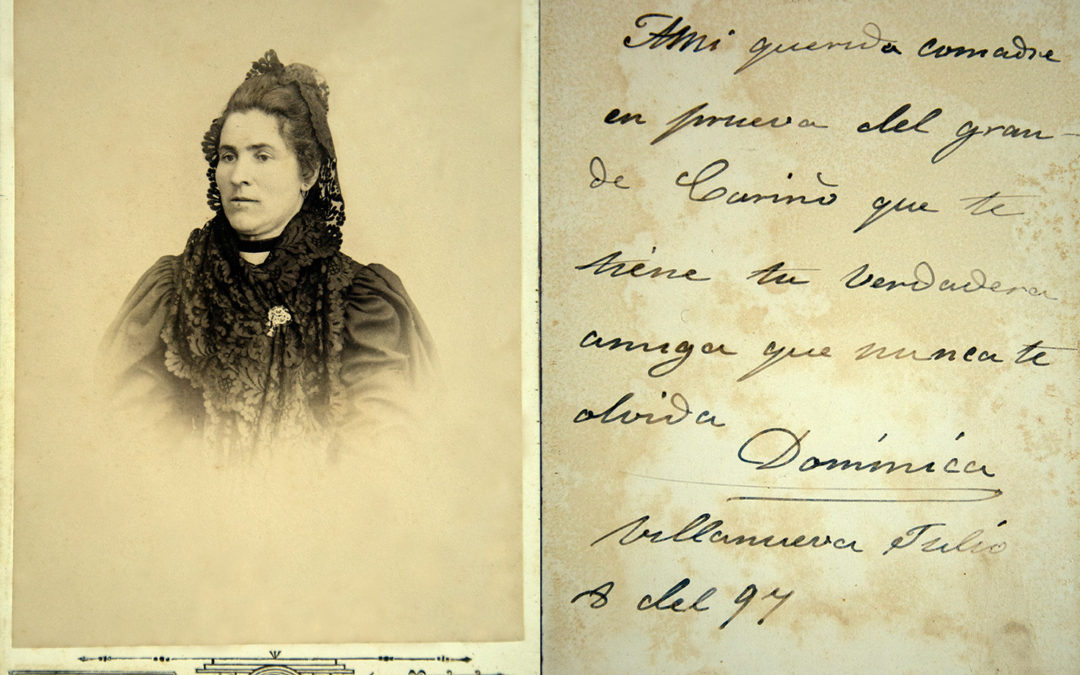 A Mi querida comadre
en prueva del gran-
de Cariño que te
tiene tu verdadera
amiga que nunca te
olvida
Dominica
Villanueva Julio
8 del 97